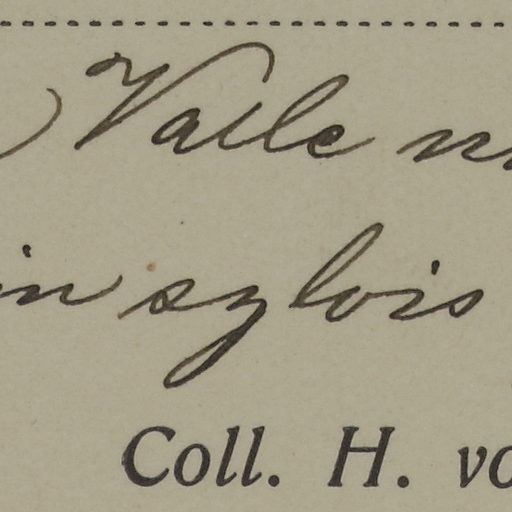 Valle
in sylvis
Coll. H. vo